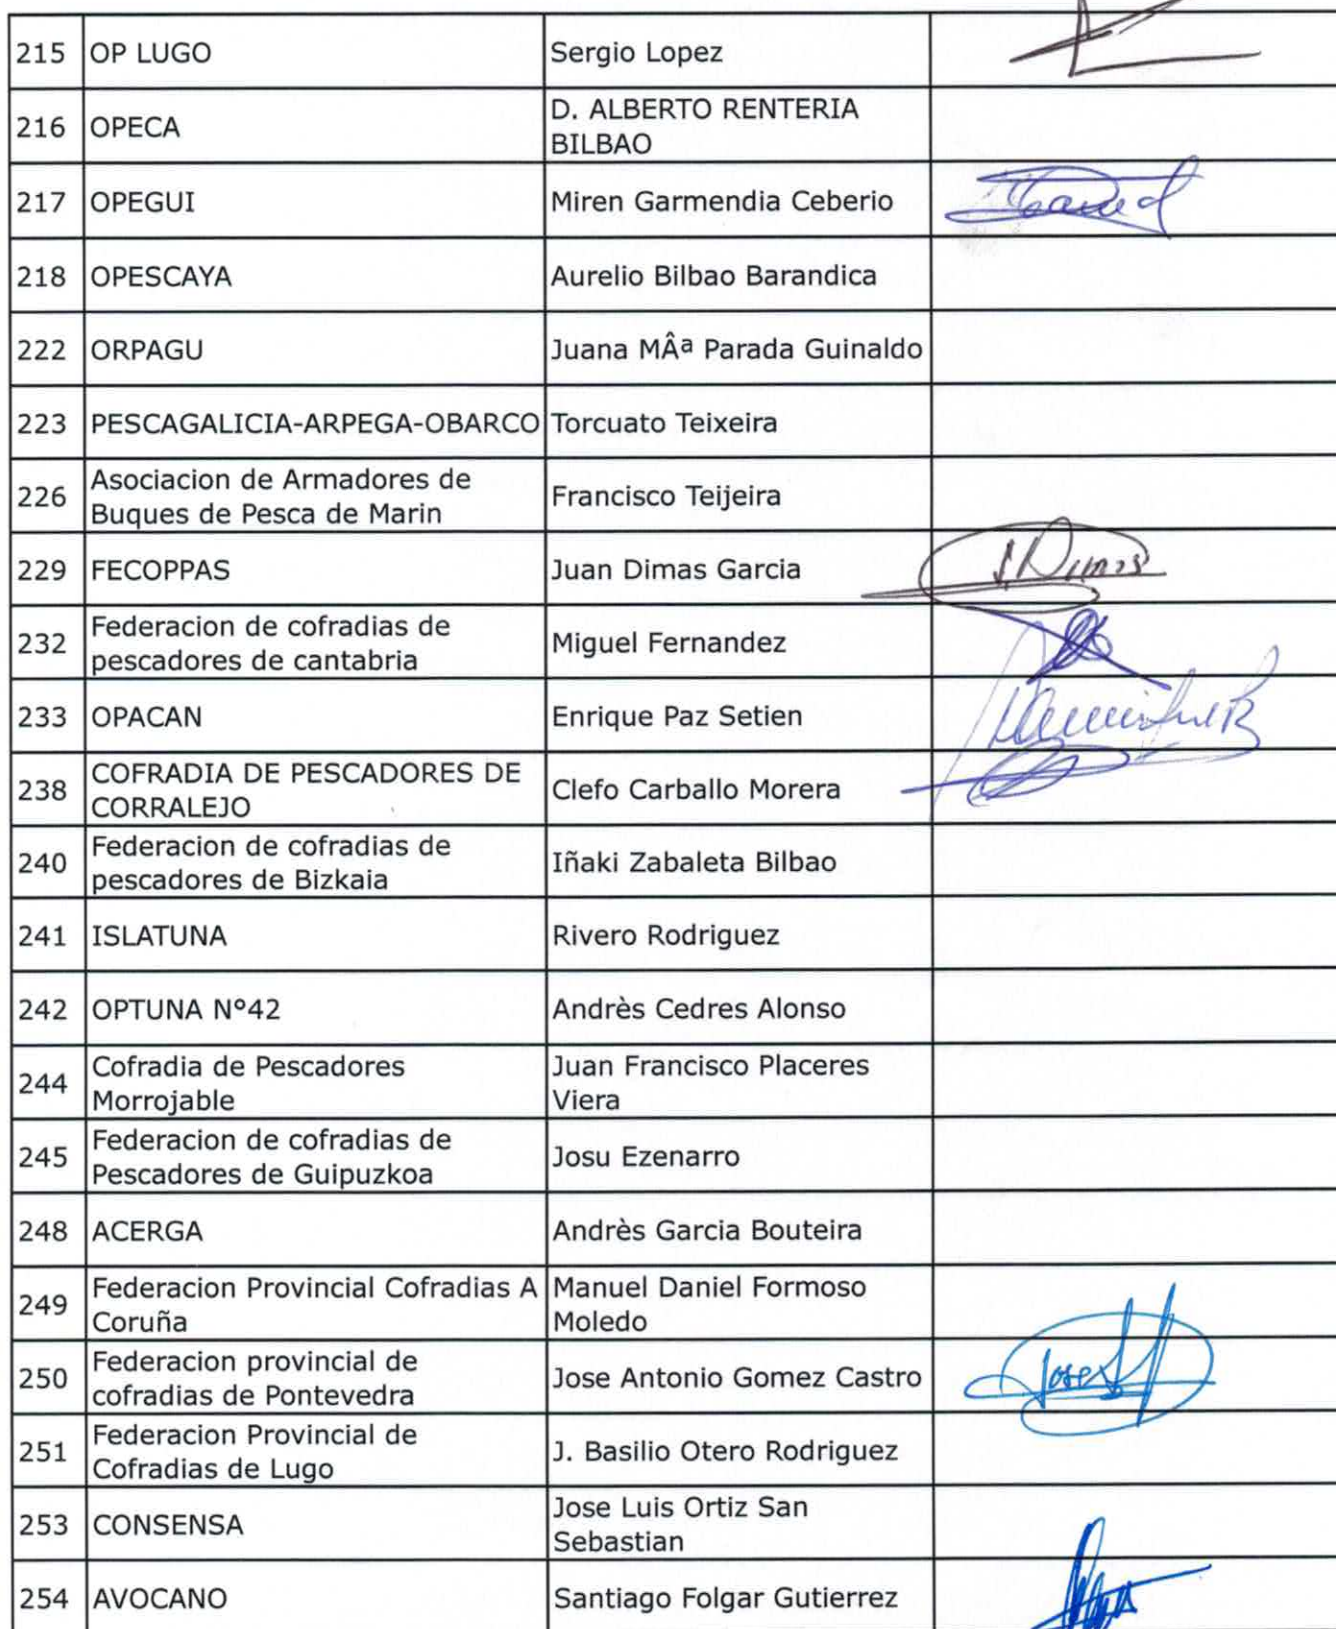 215 OP LUGO Sergio Lopez
216 OPECA D. ALBERTO RENTERIA
BILBAO
217 OPEGUI Miren Garmendia Ceberio
218 OPESCAYA Aurelio Bilbao Barandica
222 ORPAGU Juana MÂª Parada Guinaldo
223 PESCAGALICIA-ARPEGA-OBARCO Torcuato Teixeira
226 Asociacion de Armadores de
Buques de Pesca de Marin Francisco Teijeira
229 FECOPPAS Juan Dimas Garcia J Dimas
232 Federacion de cofradias de
pescadores de cantabria Miguel Fernandez
233 OPACAN Enrique Paz Setien
238 COFRADIA DE PESCADORES DE
CORRALEJO Clefo Carballo Morera
240 Federacion de cofradias de
pescadores de Bizkaia Iñaki Zabaleta Bilbao
241 ISLATUNA Rivero Rodriguez
242 OPTUNA Nº42 Andrès Cedres Alonso
244 Cofradia de Pescadores
Morrojable Juan Francisco Placeres
Viera
245 Federacion de cofradias de
Pescadores de Guipuzkoa Josu Ezenarro
248 ACERGA Andrès Garcia Bouteira
249 Federacion Provincial Cofradias A
Coruña Manuel Daniel Formoso
Moledo
250 Federacion provincial de
cofradias de Pontevedra Jose Antonio Gomez Castro Jose
251 Federacion Provincial de
Cofradias de Lugo J. Basilio Otero Rodriguez
253 CONSENSA Jose Luis Ortiz San
Sebastian
254 AVOCANO Santiago Folgar Gutierrez